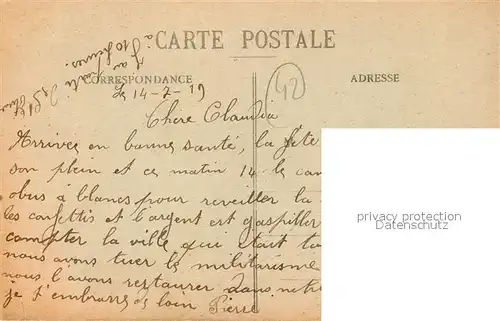 CARTE POSTALE
CORRESPONDANCE
ADRESSE
42
14-7-19
Chere Claudia
Arrivee en bonne santé, la fête
son plein et ce matin 14 le can
obus à blancs pour reveiller la
les confettis et l'argent est gaspiller
compter la ville qui etait
nous avons tuer le militarisme
nous l'avons restaurer dans notre
je t'embrasse de loin Pierre
privacy protection
Datenschutz